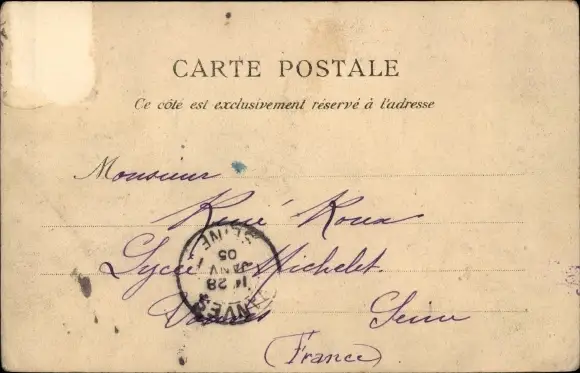 CARTE POSTALE
Ce côté est exclusivement réservé à l'adresse
Monsieur
René Roux
Lycée Michelet.
Vanves Seine
(France)
VANVES
SEINE
28
JANV
05